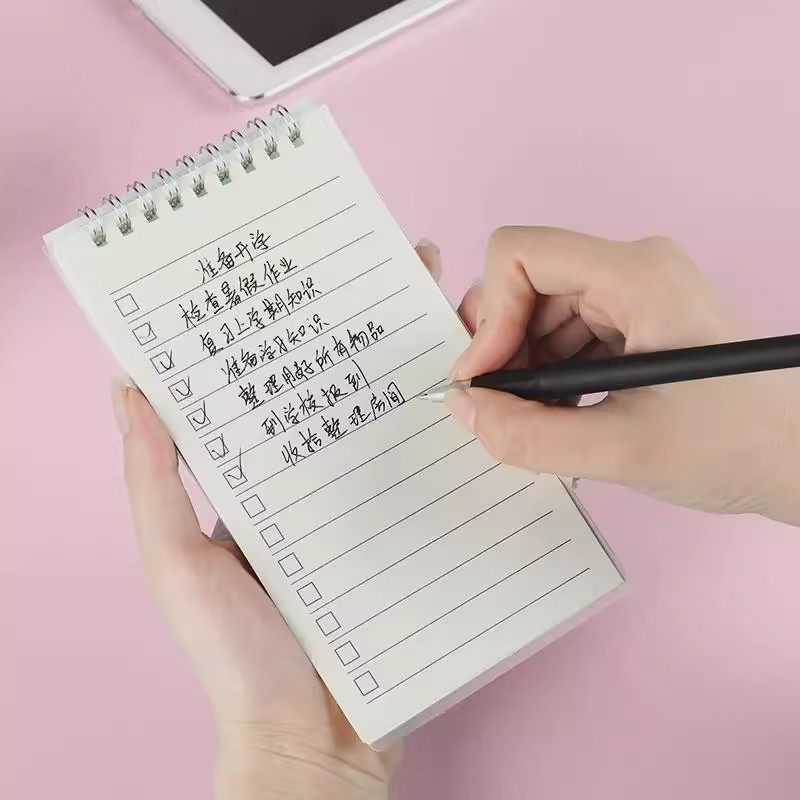 准备开学
检查暑假作业
复习上学期知识
准备学习知识
整理用好所有物品
到学校报到
收拾整理房间